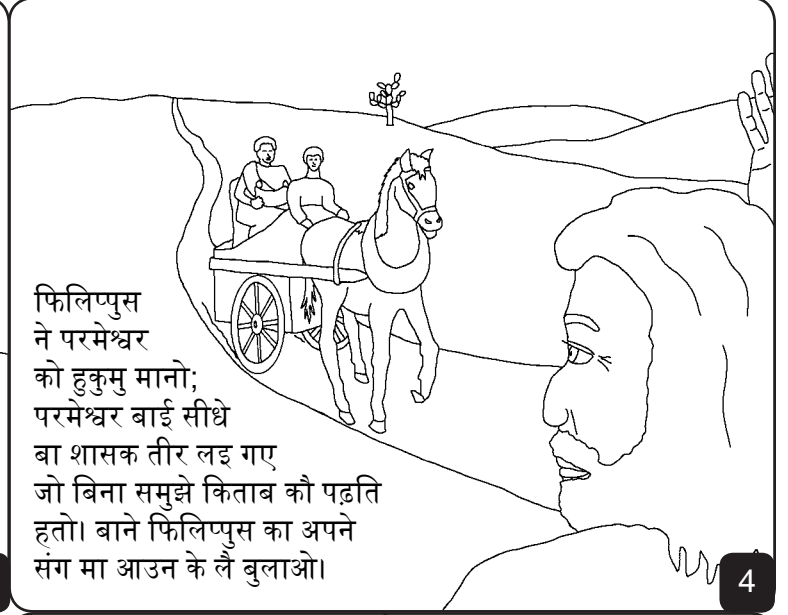 फिलिप्पुस
ने परमेश्वर
को हुकुमु मानो;
परमेश्वर बाई सीधे
बा शासक तीर लइ गए
जो बिना समुझे किताब कौ पढ़ति
हतो। बाने फिलिप्पुस का अपने
संग मा आउन के लै बुलाओ।
4